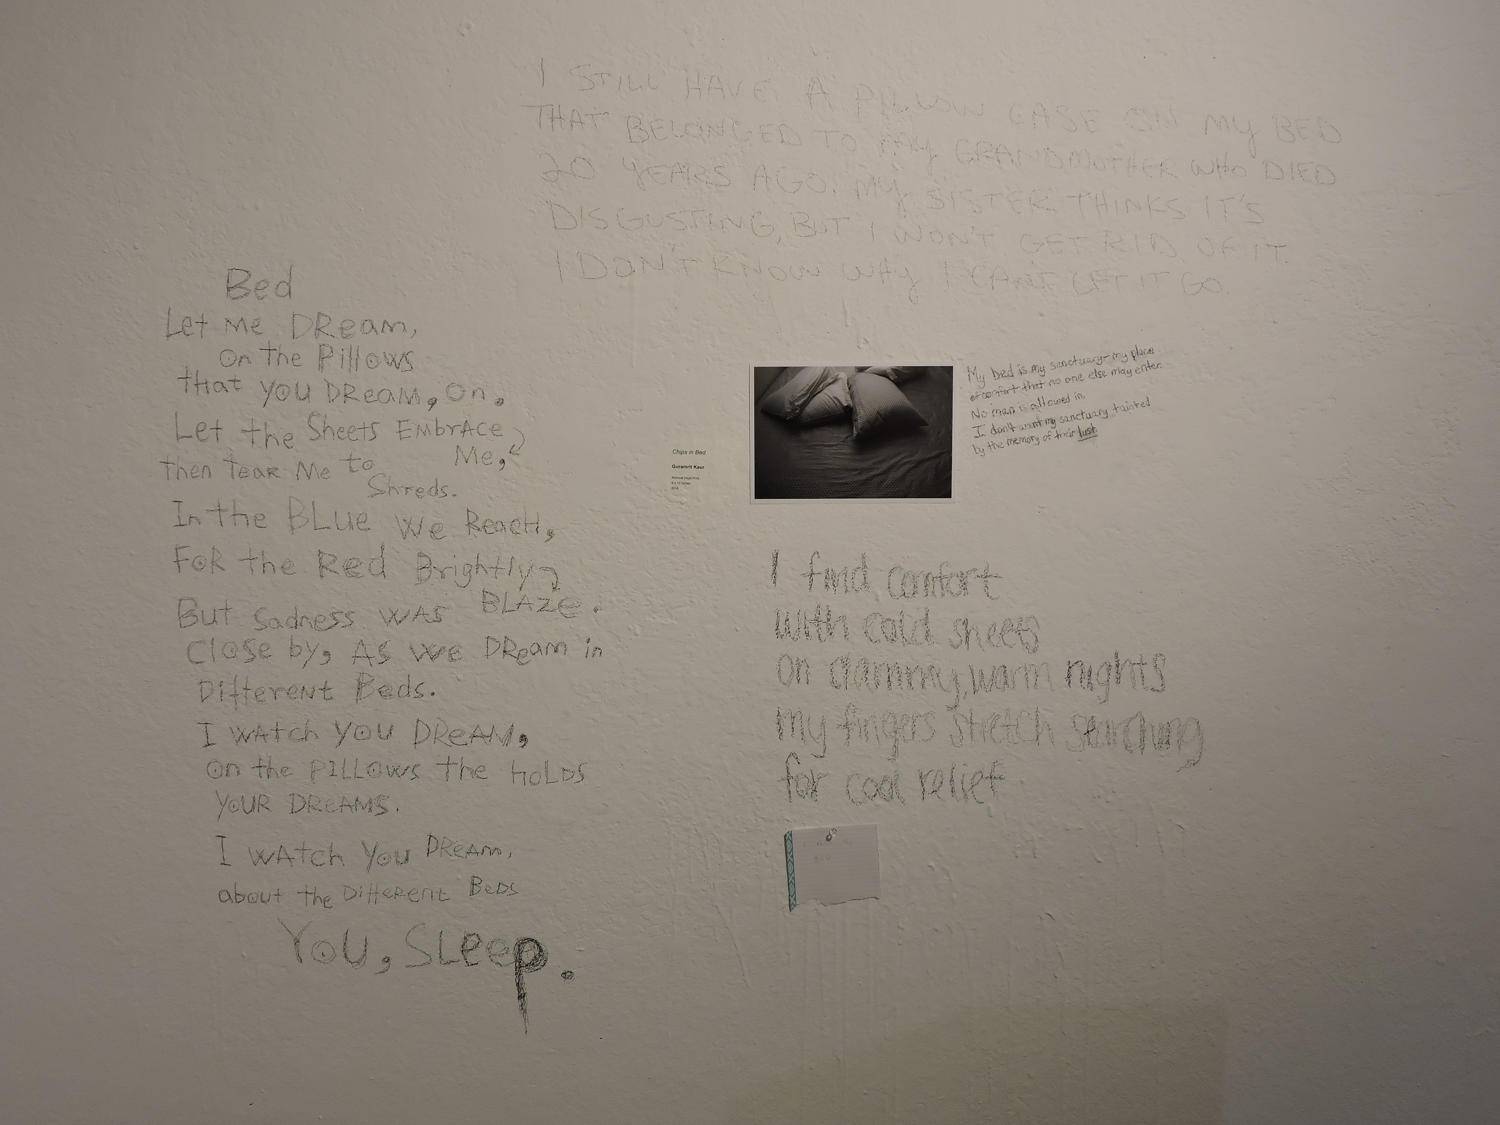 I STILL HAVE A PILLOW CASE ON MY BED
THAT BELONGED TO MY GRANDMOTHER WHO DIED
20 YEARS AGO. MY SISTER THINKS IT'S
DISGUSTING, BUT I WON'T GET RID OF IT.
I DON'T KNOW WHY I CAN'T LET IT GO.
Bed
Let Me DReam,
On the Pillows
that YOU DReam, On,
Let the Sheets EMbrAce
Me,
then TeaR Me to
Shreds.
In the BLue We ReacH,
FoR the Red Brightly
BLAZe.
But sadness WAS
Close by, As We DReam in
Different Beds.
I WAtch YOU DReAM,
On the PILLOWS The HOLDS
YOUR DReAMS.
I WAtch YOU DReam,
about the DiffeRent BeDS
YOU, SLeep.
Chips in Bed
Guramrit Kaur
My bed is my sanctuary- my place
of comfort that no one else may enter.
No man is allowed in.
I don't want my sanctuary tainted
by the memory of their lust
I find comfort
with cold sheets
on clammy, warm nights
my fingers stretch searching
for cool relief